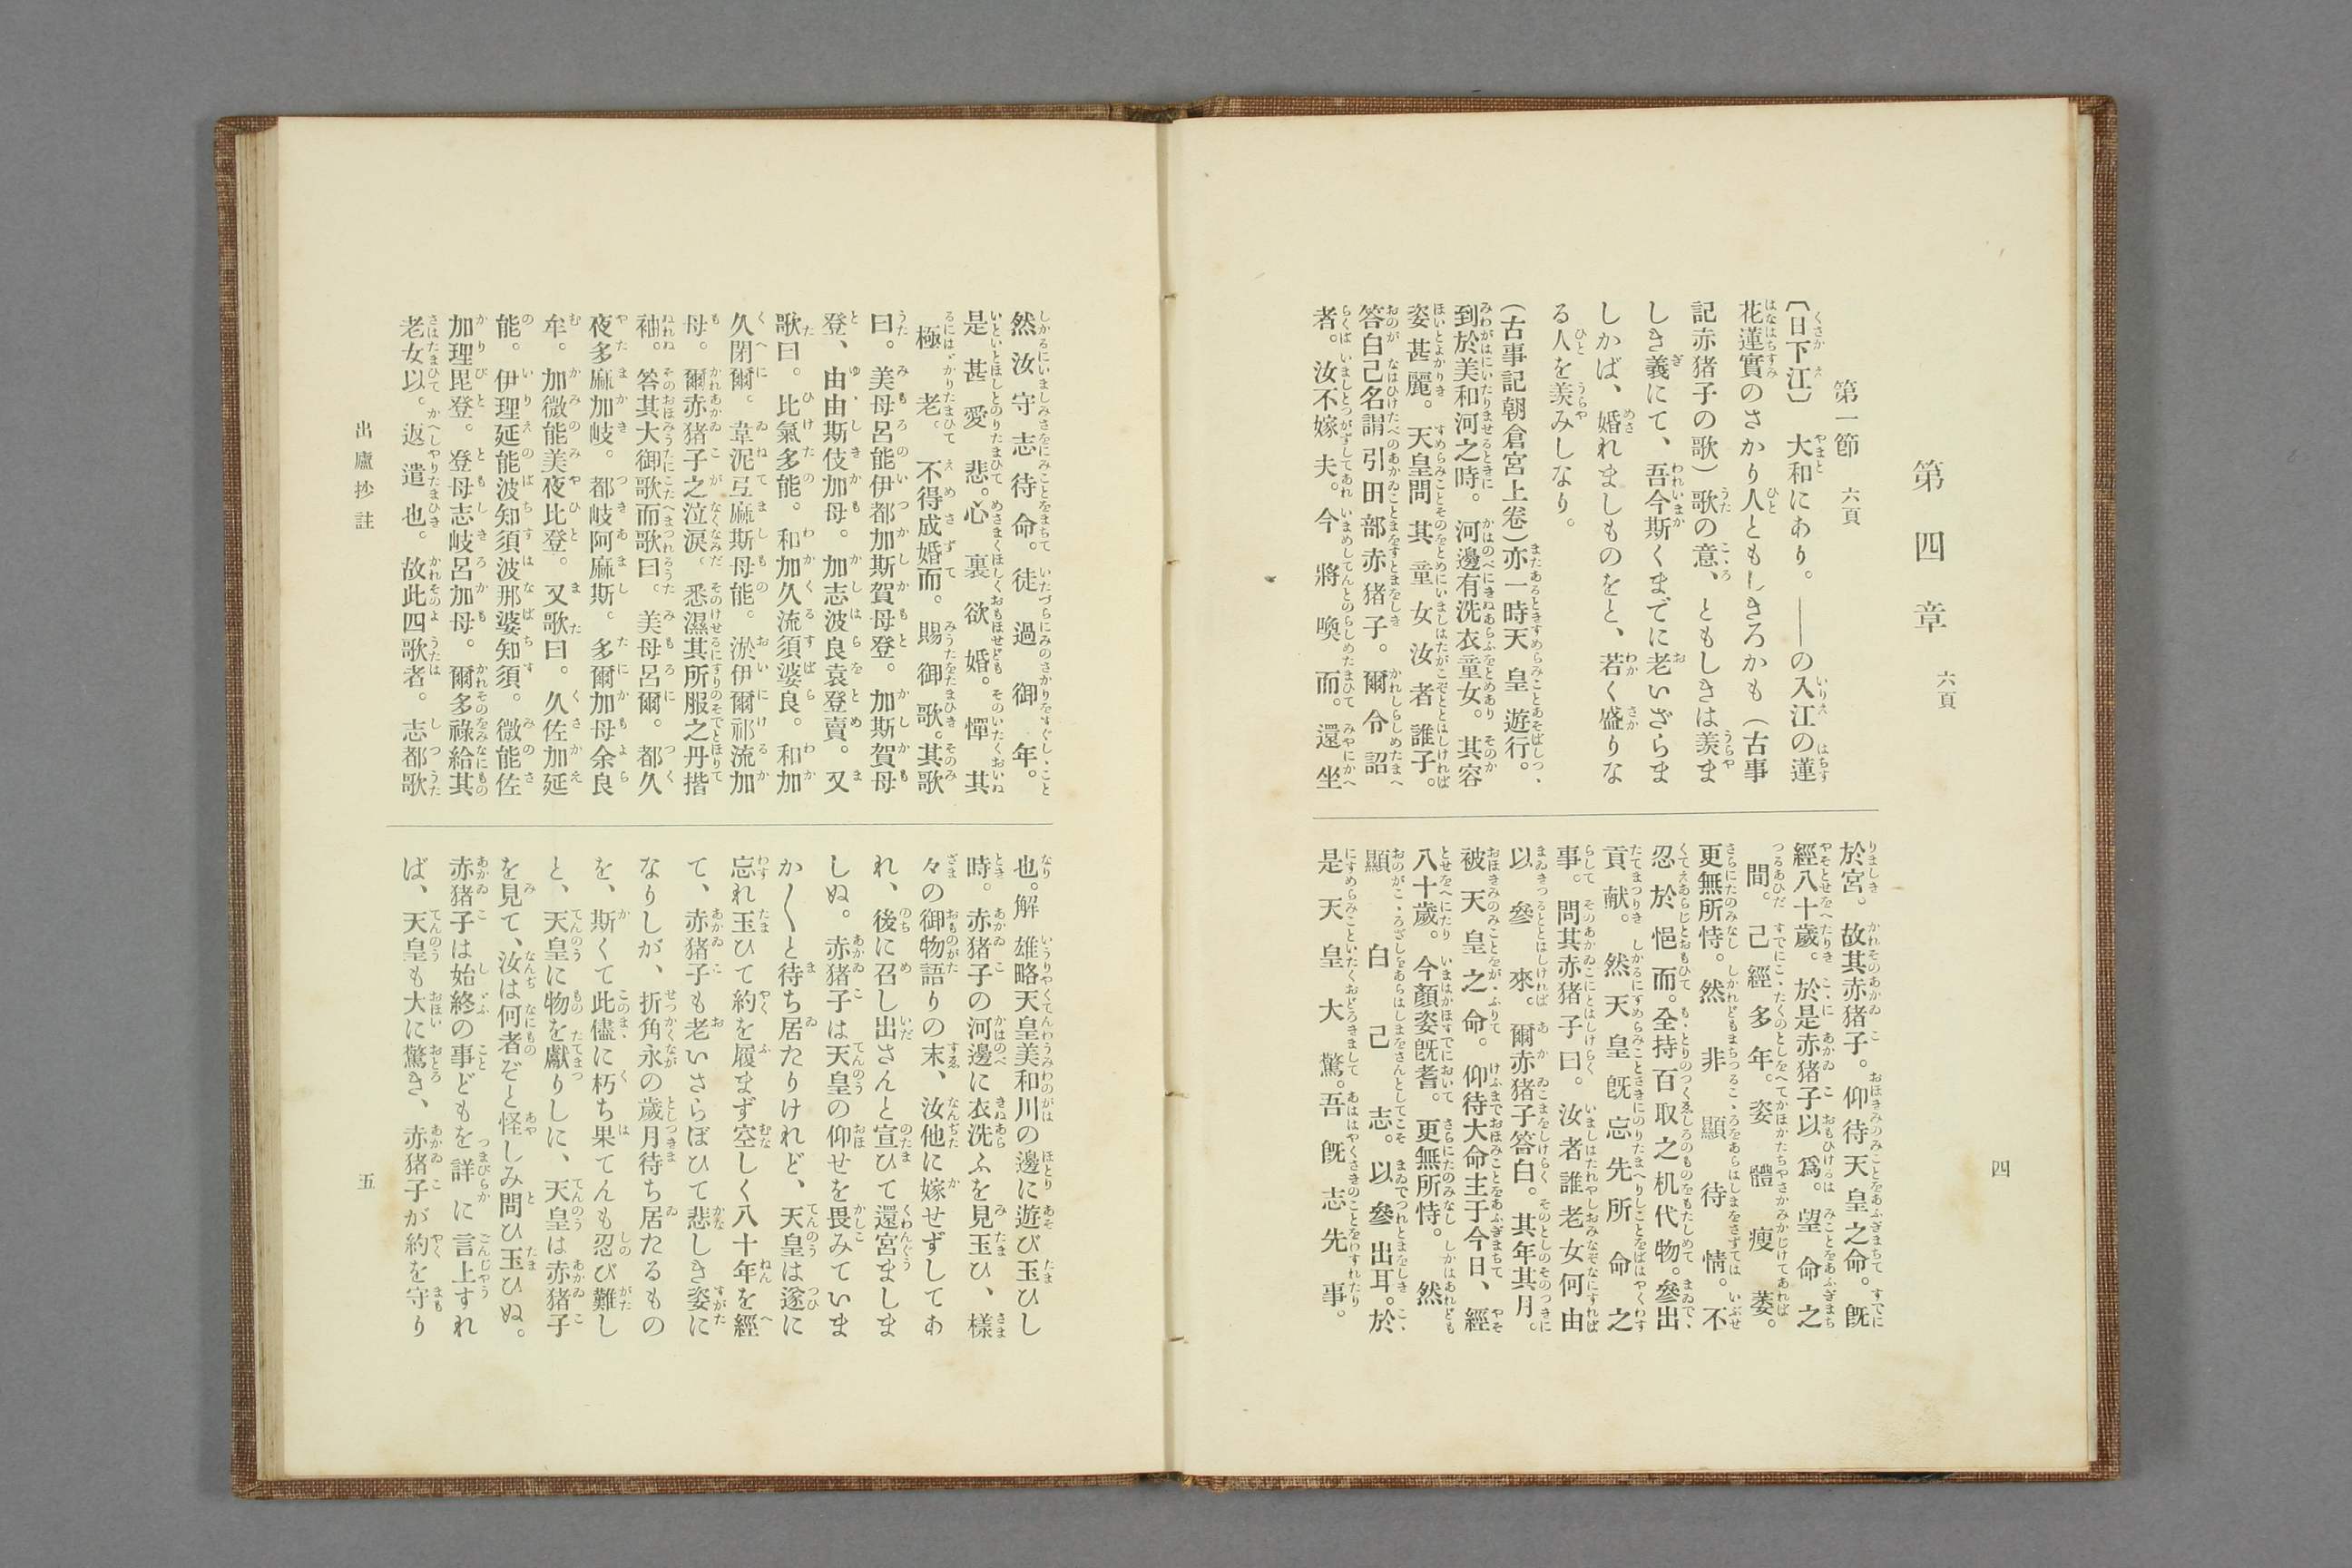 第四章
六頁
第一節
六頁
〔日下江〕 大和にあり。――の入江の蓮
花蓮實のさかり人ともしきろかも（古事
記赤猪子の歌）歌の意、ともしきは羨ま
しき義にて、吾今斯くまでに老いざらま
しかば、婚れましものをと、若く盛りな
る人を羨みしなり。
（古事記朝倉宮上卷）亦一時天皇遊行。
到於美和河之時。河邊有洗衣童女。其容
姿甚麗。天皇問其童女汝者誰子。
答白己名謂引田部赤猪子。爾令詔
者。汝不嫁夫。今將喚而。還坐
於宮。故其赤猪子。仰待天皇之命。旣
經八十歲。於是赤猪子以爲。望命之
間。已經多年。姿體瘦萎。
更無所恃。然非顯待情。不
忍於悒而。全持百取之机代物。參出
貢献。然天皇旣忘先所命之
事。問其赤猪子曰。汝者誰老女何由
以參來。爾赤猪子答白。其年其月。
被天皇之命。仰待大命主于今日、經
八十歲。今顏姿旣耆。更無所恃。然
顯白己志。以參出耳。於
是天皇大驚。吾旣志先事。
四
然汝守志待命。徒過御年。
是甚愛悲。心裏欲婚。憚其
極老。不得成婚而。賜御歌。其歌
曰。美母呂能伊都加斯賀母登。加斯賀母
登、由由斯伎加母。加志波良袁登賣。又
歌曰。比氣多能。和加久流須婆良。和加
久閉爾。韋泥弖麻斯母能。淤伊爾祁流加
母。爾赤猪子之泣涙。悉濕其所服之丹揩
袖。答其大御歌而歌曰。美母呂爾。都久
夜多麻加岐。都岐阿麻斯。多爾加母余良
牟。加微能美夜比登。又歌曰。久佐加延
能。伊理延能波知須波那婆知須。微能佐
加理毘登。登母志岐呂加母。爾多祿給其
老女以。返遣也。故此四歌者。志都歌
也。解 雄略天皇美和川の邊に遊び玉ひし
時。赤猪子の河邊に衣洗ふを見玉ひ、樣
々の御物語りの末、汝他に嫁せずしてあ
れ、後に召し出さんと宣ひて還宮ましま
しぬ。赤猪子は天皇の仰せを畏みていま
か〱と待ち居たりけれど、天皇は遂に
忘れ玉ひて約を履まず空しく八十年を經
て、赤猪子も老いさらぼひて悲しき姿に
なりしが、折角永の歲月待ち居たるもの
を、斯くて此儘に朽ち果てんも忍び難し
と、天皇に物を獻りしに、天皇は赤猪子
を見て、汝は何者ぞと怪しみ問ひ玉ひぬ。
赤猪子は始終の事どもを詳に言上すれ
ば、天皇も大に驚き、赤猪子が約を守り
出廬抄註
五